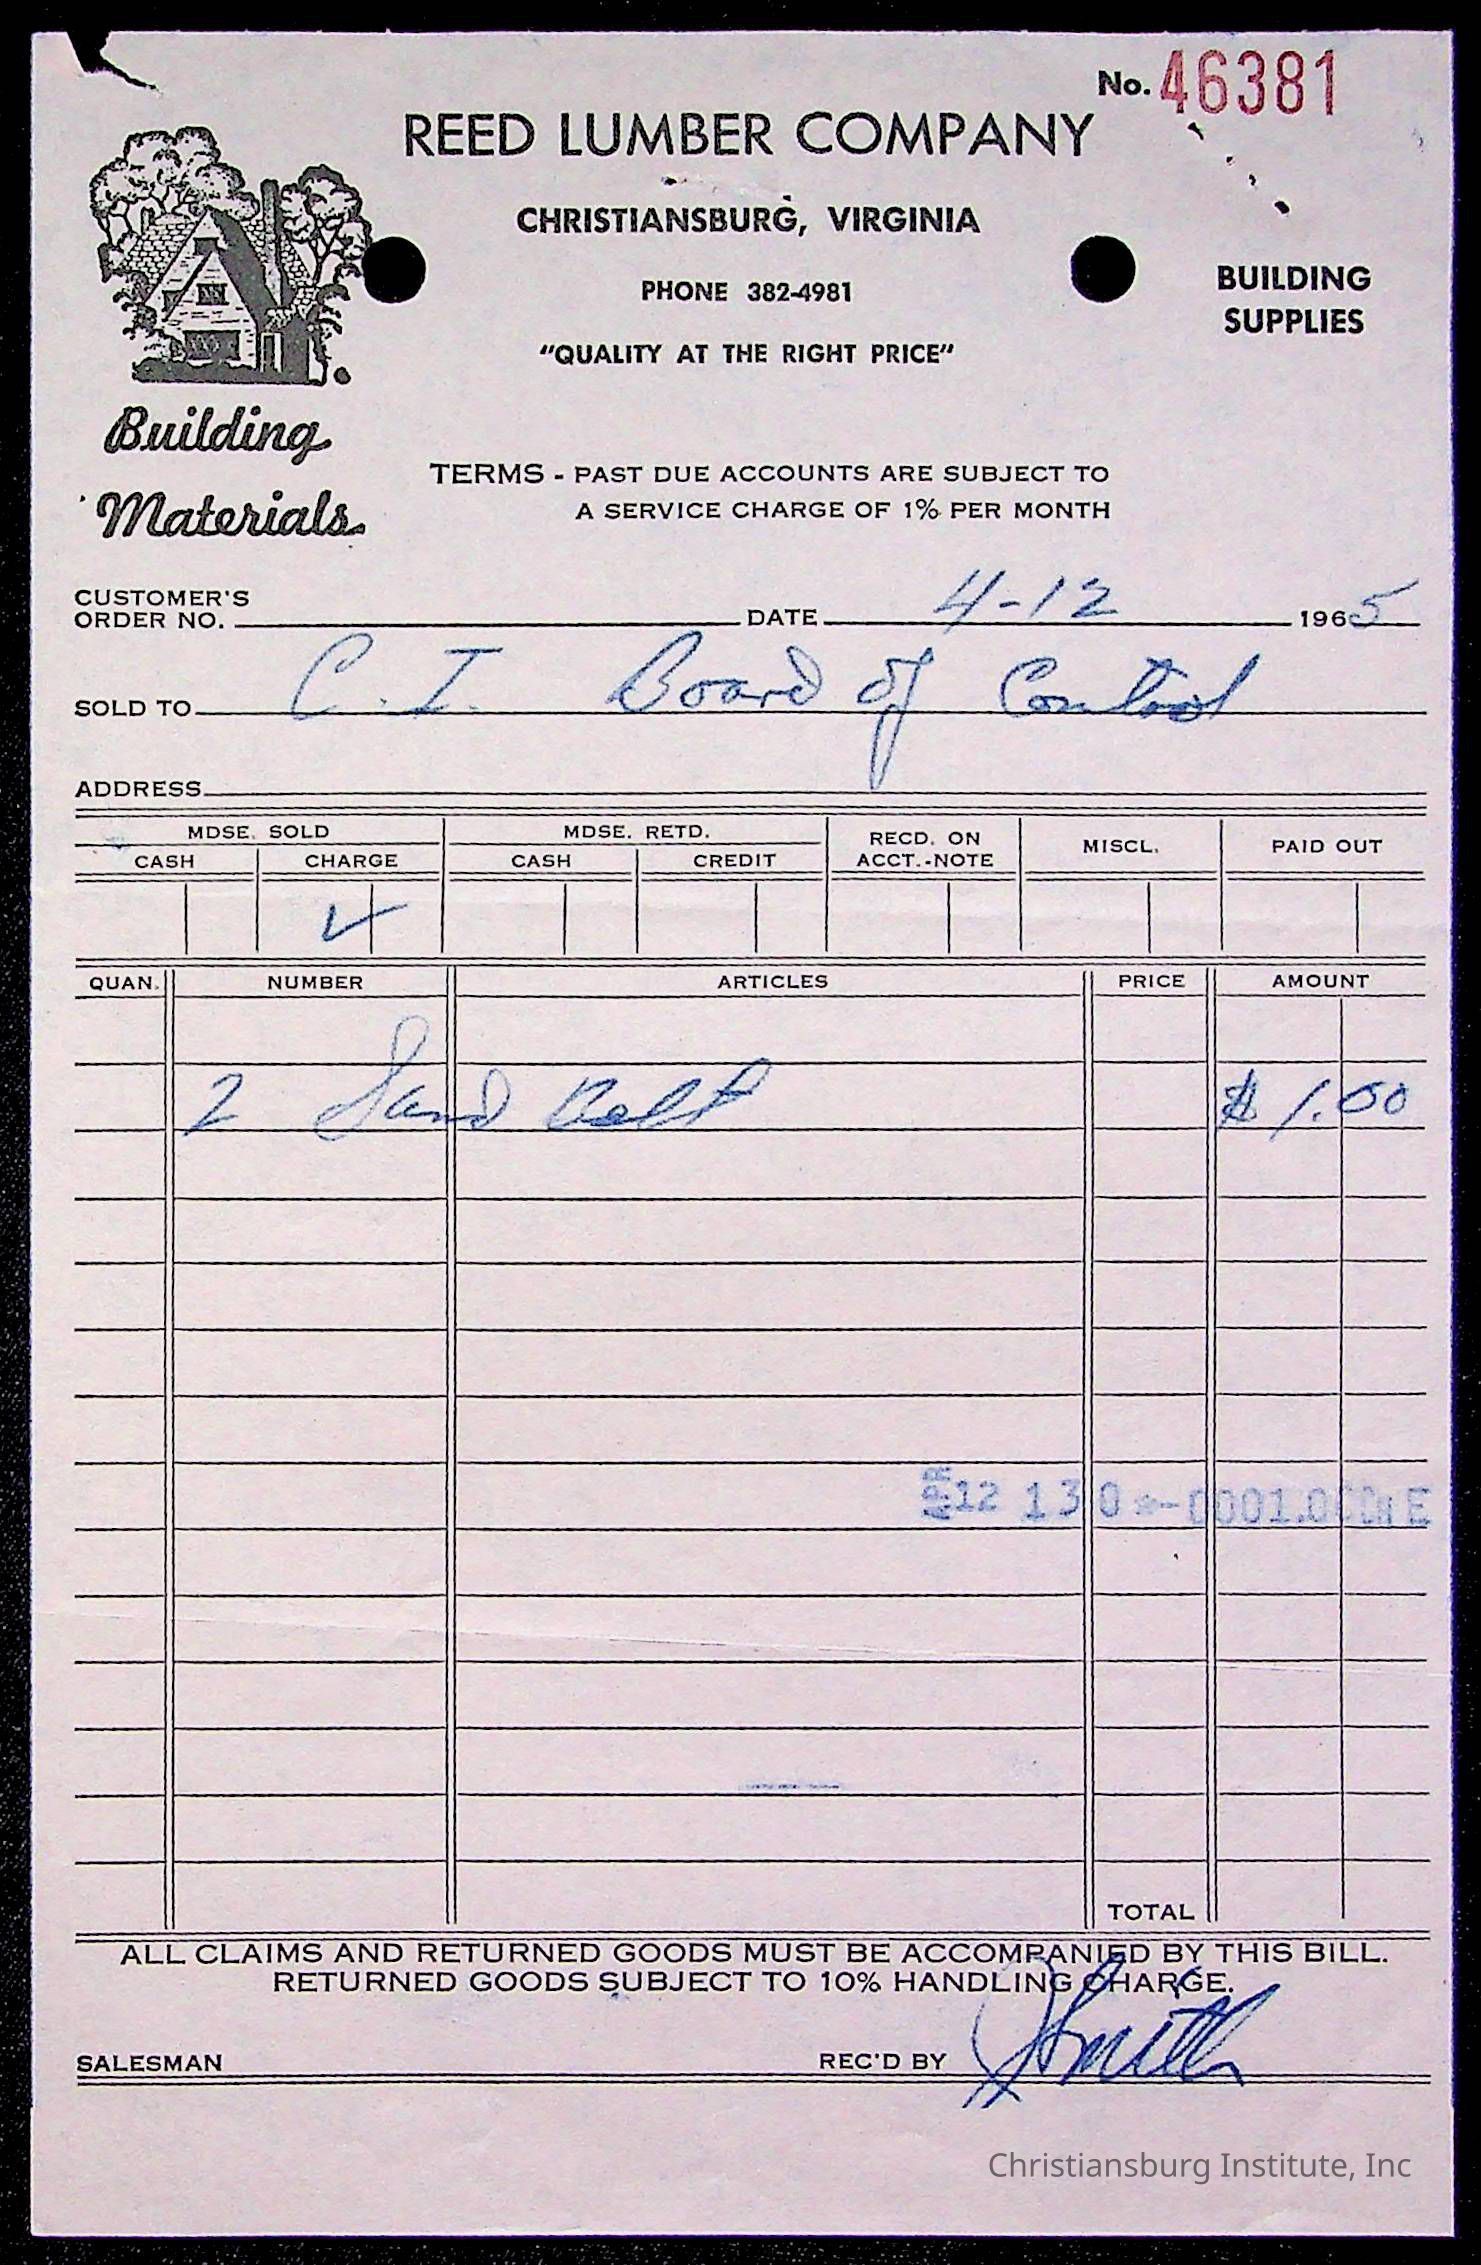 No. 46381
REED LUMBER COMPANY
CHRISTIANSBURG, VIRGINIA
PHONE 382-4981
"QUALITY AT THE RIGHT PRICE"
BUILDING
SUPPLIES
Building
Materials
TERMS - PAST DUE ACCOUNTS ARE SUBJECT TO
A SERVICE CHARGE OF 1% PER MONTH
CUSTOMER'S
ORDER NO. DATE 4-12 1965
SOLD TO C. I. Board of Control
ADDRESS
MDSE. SOLD MDSE. RETD. RECD. ON ACCT.-NOTE MISCL. PAID OUT
CASH CHARGE CASH CREDIT
QUAN. NUMBER ARTICLES PRICE AMOUNT
2 Sand Belt $1.00
APR 12 130
TOTAL
ALL CLAIMS AND RETURNED GOODS MUST BE ACCOMPANIED BY THIS BILL.
RETURNED GOODS SUBJECT TO 10% HANDLING CHARGE.
SALESMAN REC'D BY Smith
Christiansburg Institute, Inc